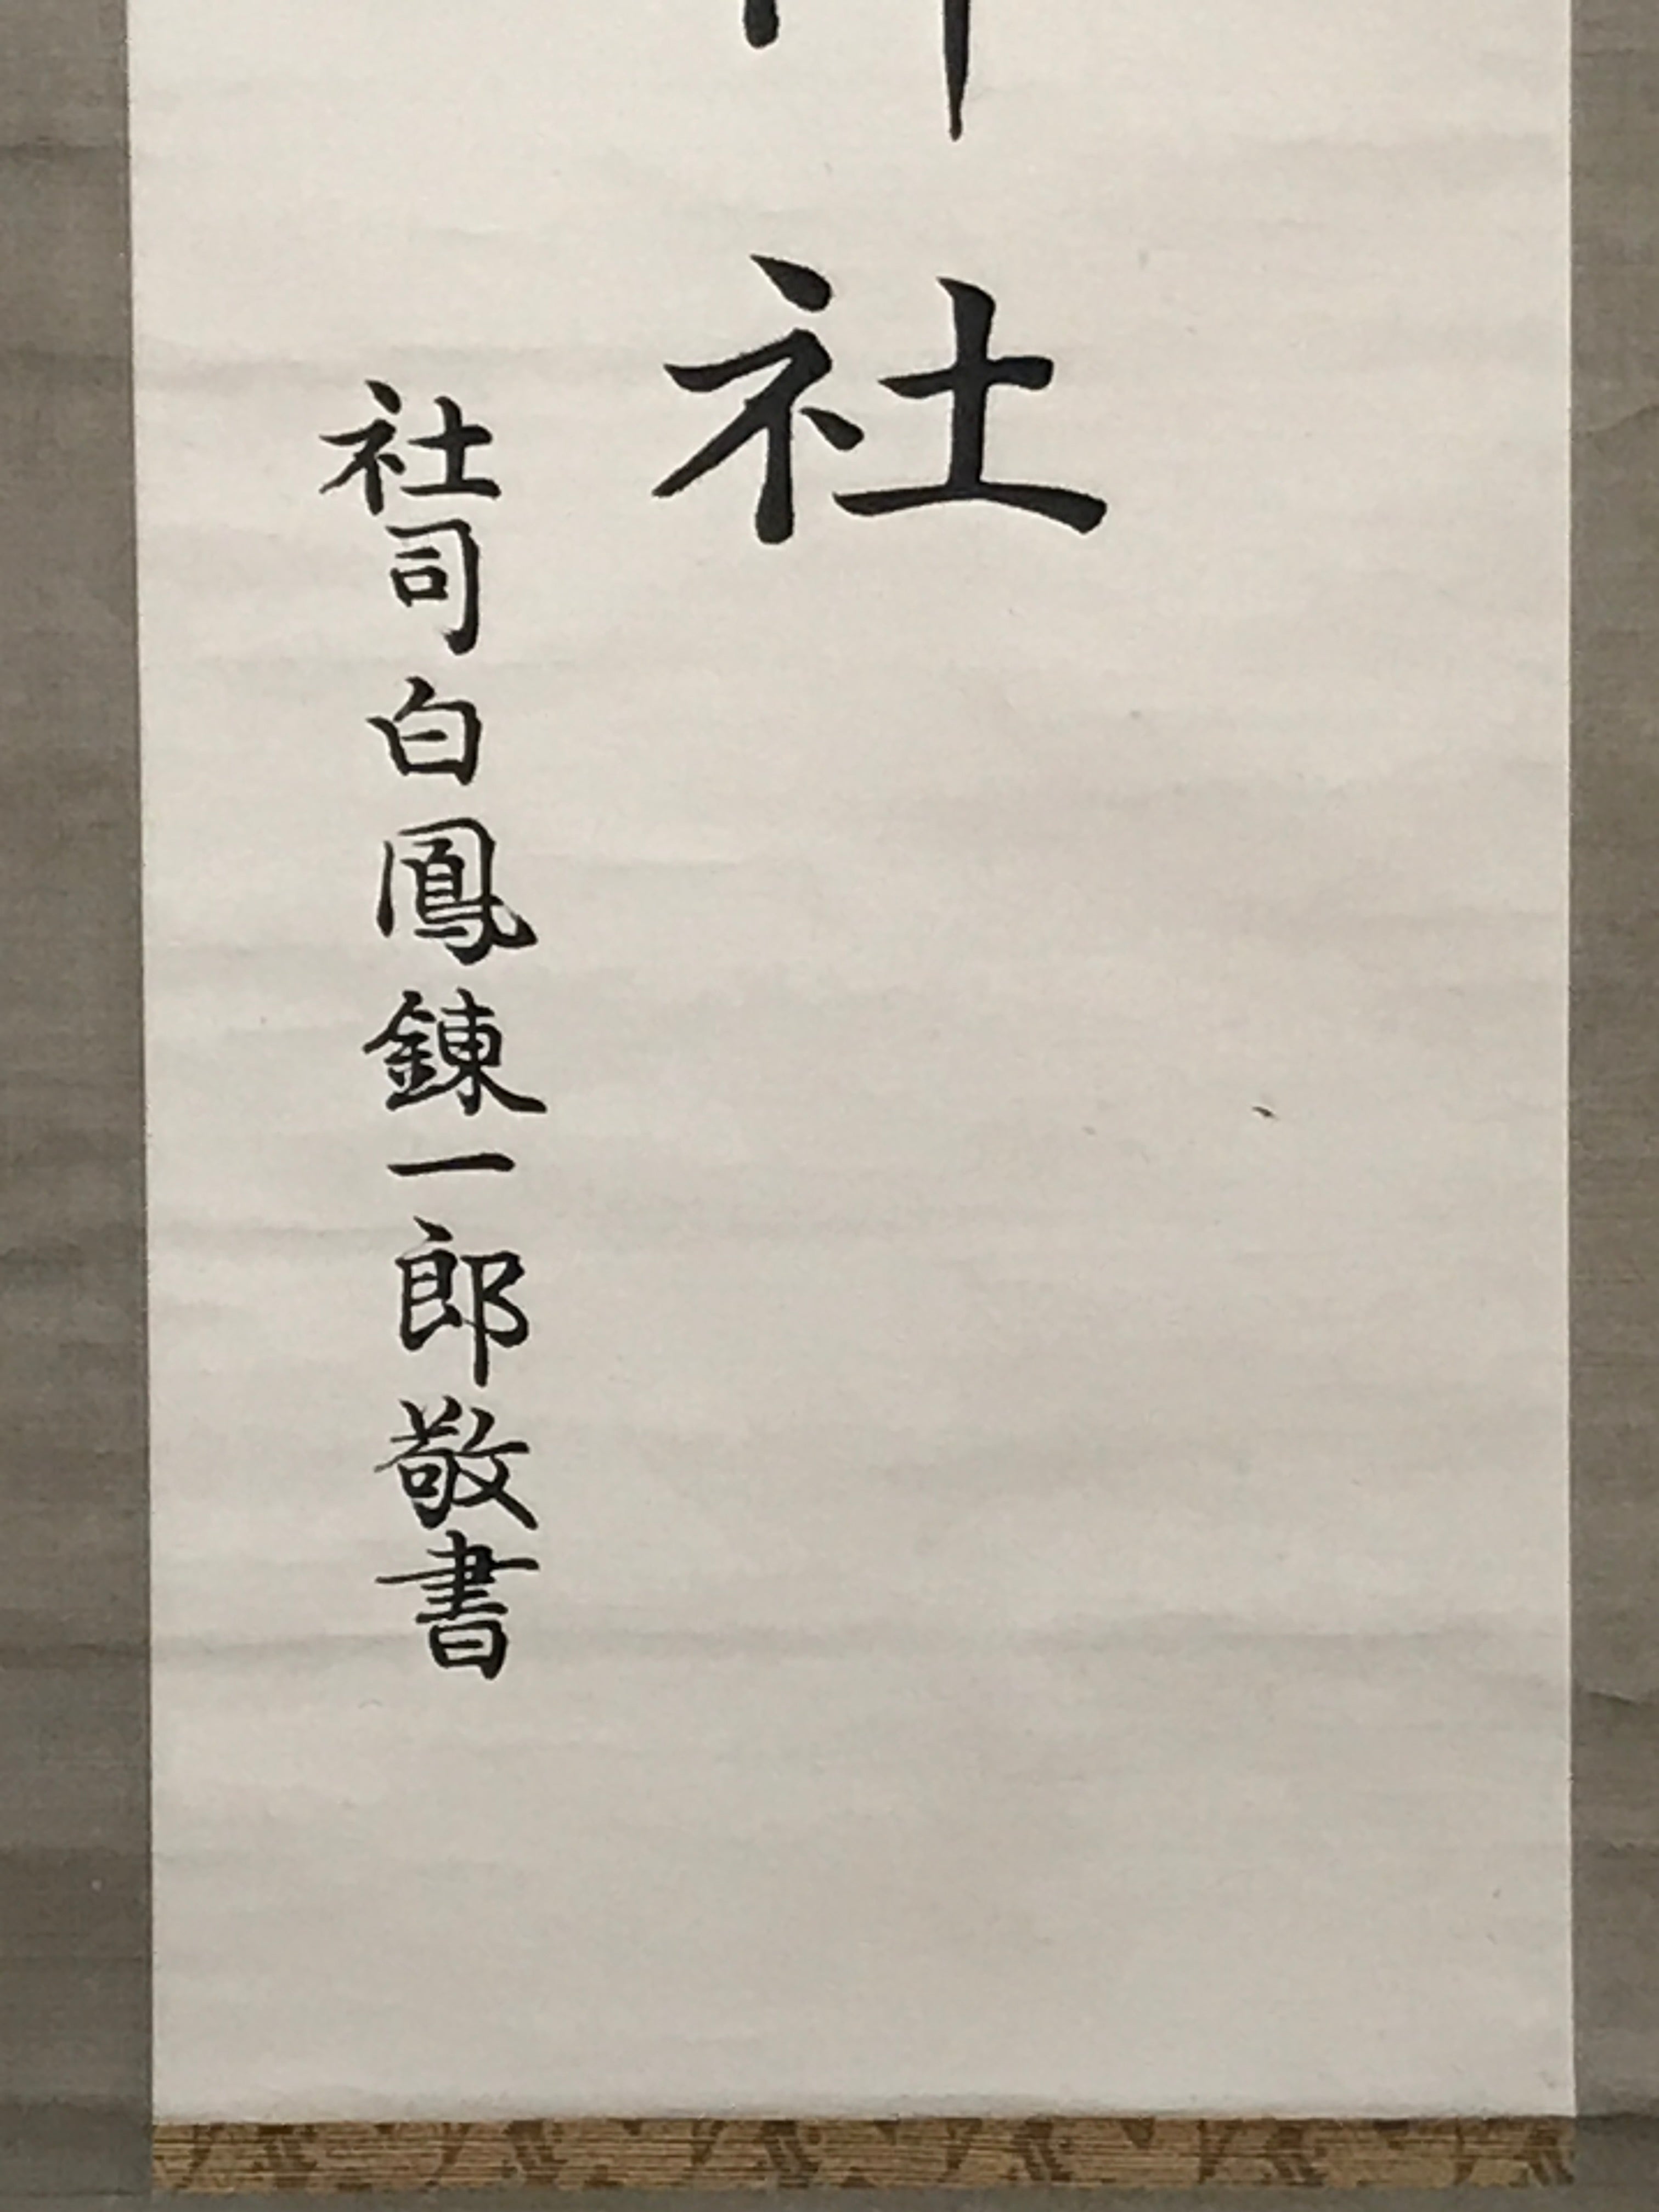 社
社司白鳳錬一郎敬書